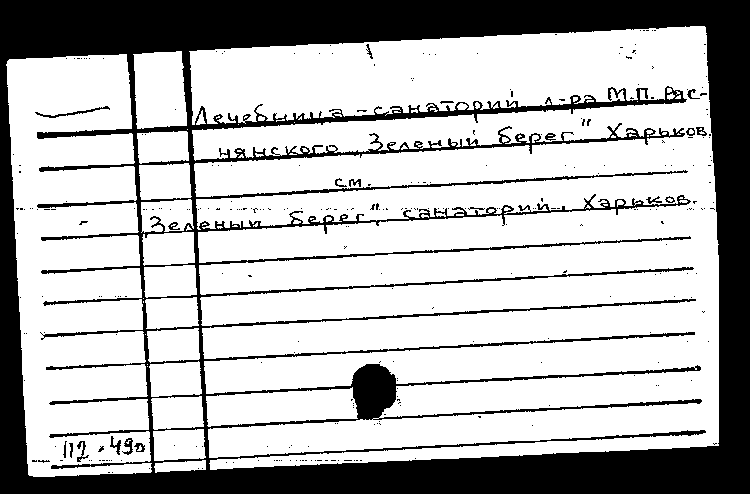 Лечебница-санаторий д-ра М.П. Ряс-
нянского „Зеленый берег" Харьков.
см.
„Зеленый берег", санаторий, Харьков.
112-490